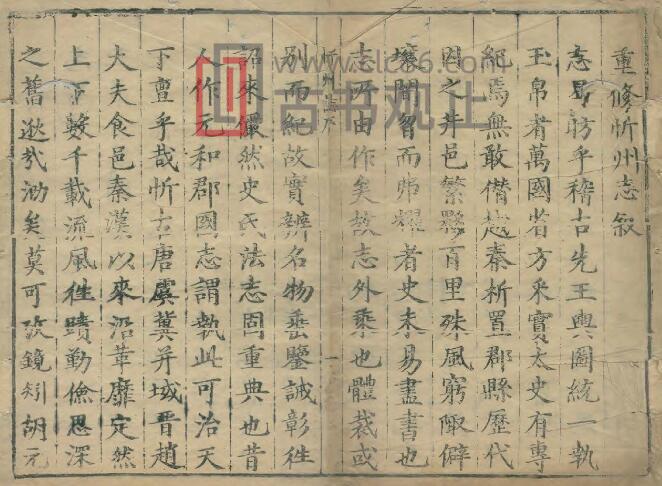 重修忻州志叙
志曷昉乎稽古先王輿圖統一執
玉帛者萬國省方采實太史有專
紀焉無敢僭越秦析置郡縣歷代
因之井邑繁夥百里殊風窮陬僻
壤聞習而
者史未易盡書也
志所由作矣故志外乘也體裁或
忻州志序
一
別而紀故實辨名物垂鑒誡彰往
詔來儼然史氏法志固重典也昔
人作元和郡國志謂執此可治天
下亶乎哉忻古唐虞冀并域晉趙
大夫食邑秦漢以來沿革靡定然
上下數千載流風徃蹟勤儉思深
之舊逖哉
矣莫可攷鏡矧胡元
www.
古书观止